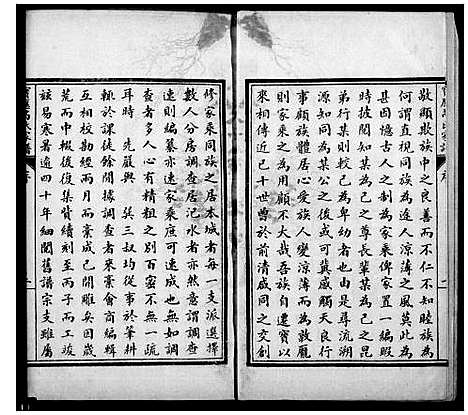 敬顯歎族中之良善而不仁不知睦族為
何謂直視同族為途人涼薄之風莫此為
甚因憶古人之制為家乘俾家置一編
時披閱知某為己之尊長某為己之昆
弟行某則枝己為卑幼者也由是尋流溯
源知同為某公之後或可冀感觸天良行
見孝友愷悌居心愛族人變涼薄為敦龐
則家乘之為用顧不大哉吾族自遷寶以
來相傳近已十世曾於前清咸同之交創
修家乘同族之居本城者每一支派選擇
數人分居調查居氾水者亦然意謂調查
速則編纂亦速家乘庶可速成也無如調
查者多人心有精粗之別百密不無一疏
耳時先嚴與巽三叔均從事於筆耕
輒於課徒餘閒據調查來彙會商編輯
互相校勘經兩月而稾成已開雕矣因歲
荒而中報後復集貲續刻至丙子而工竣
茲易寒暑逾四十年細閱舊譜宗支雖屬